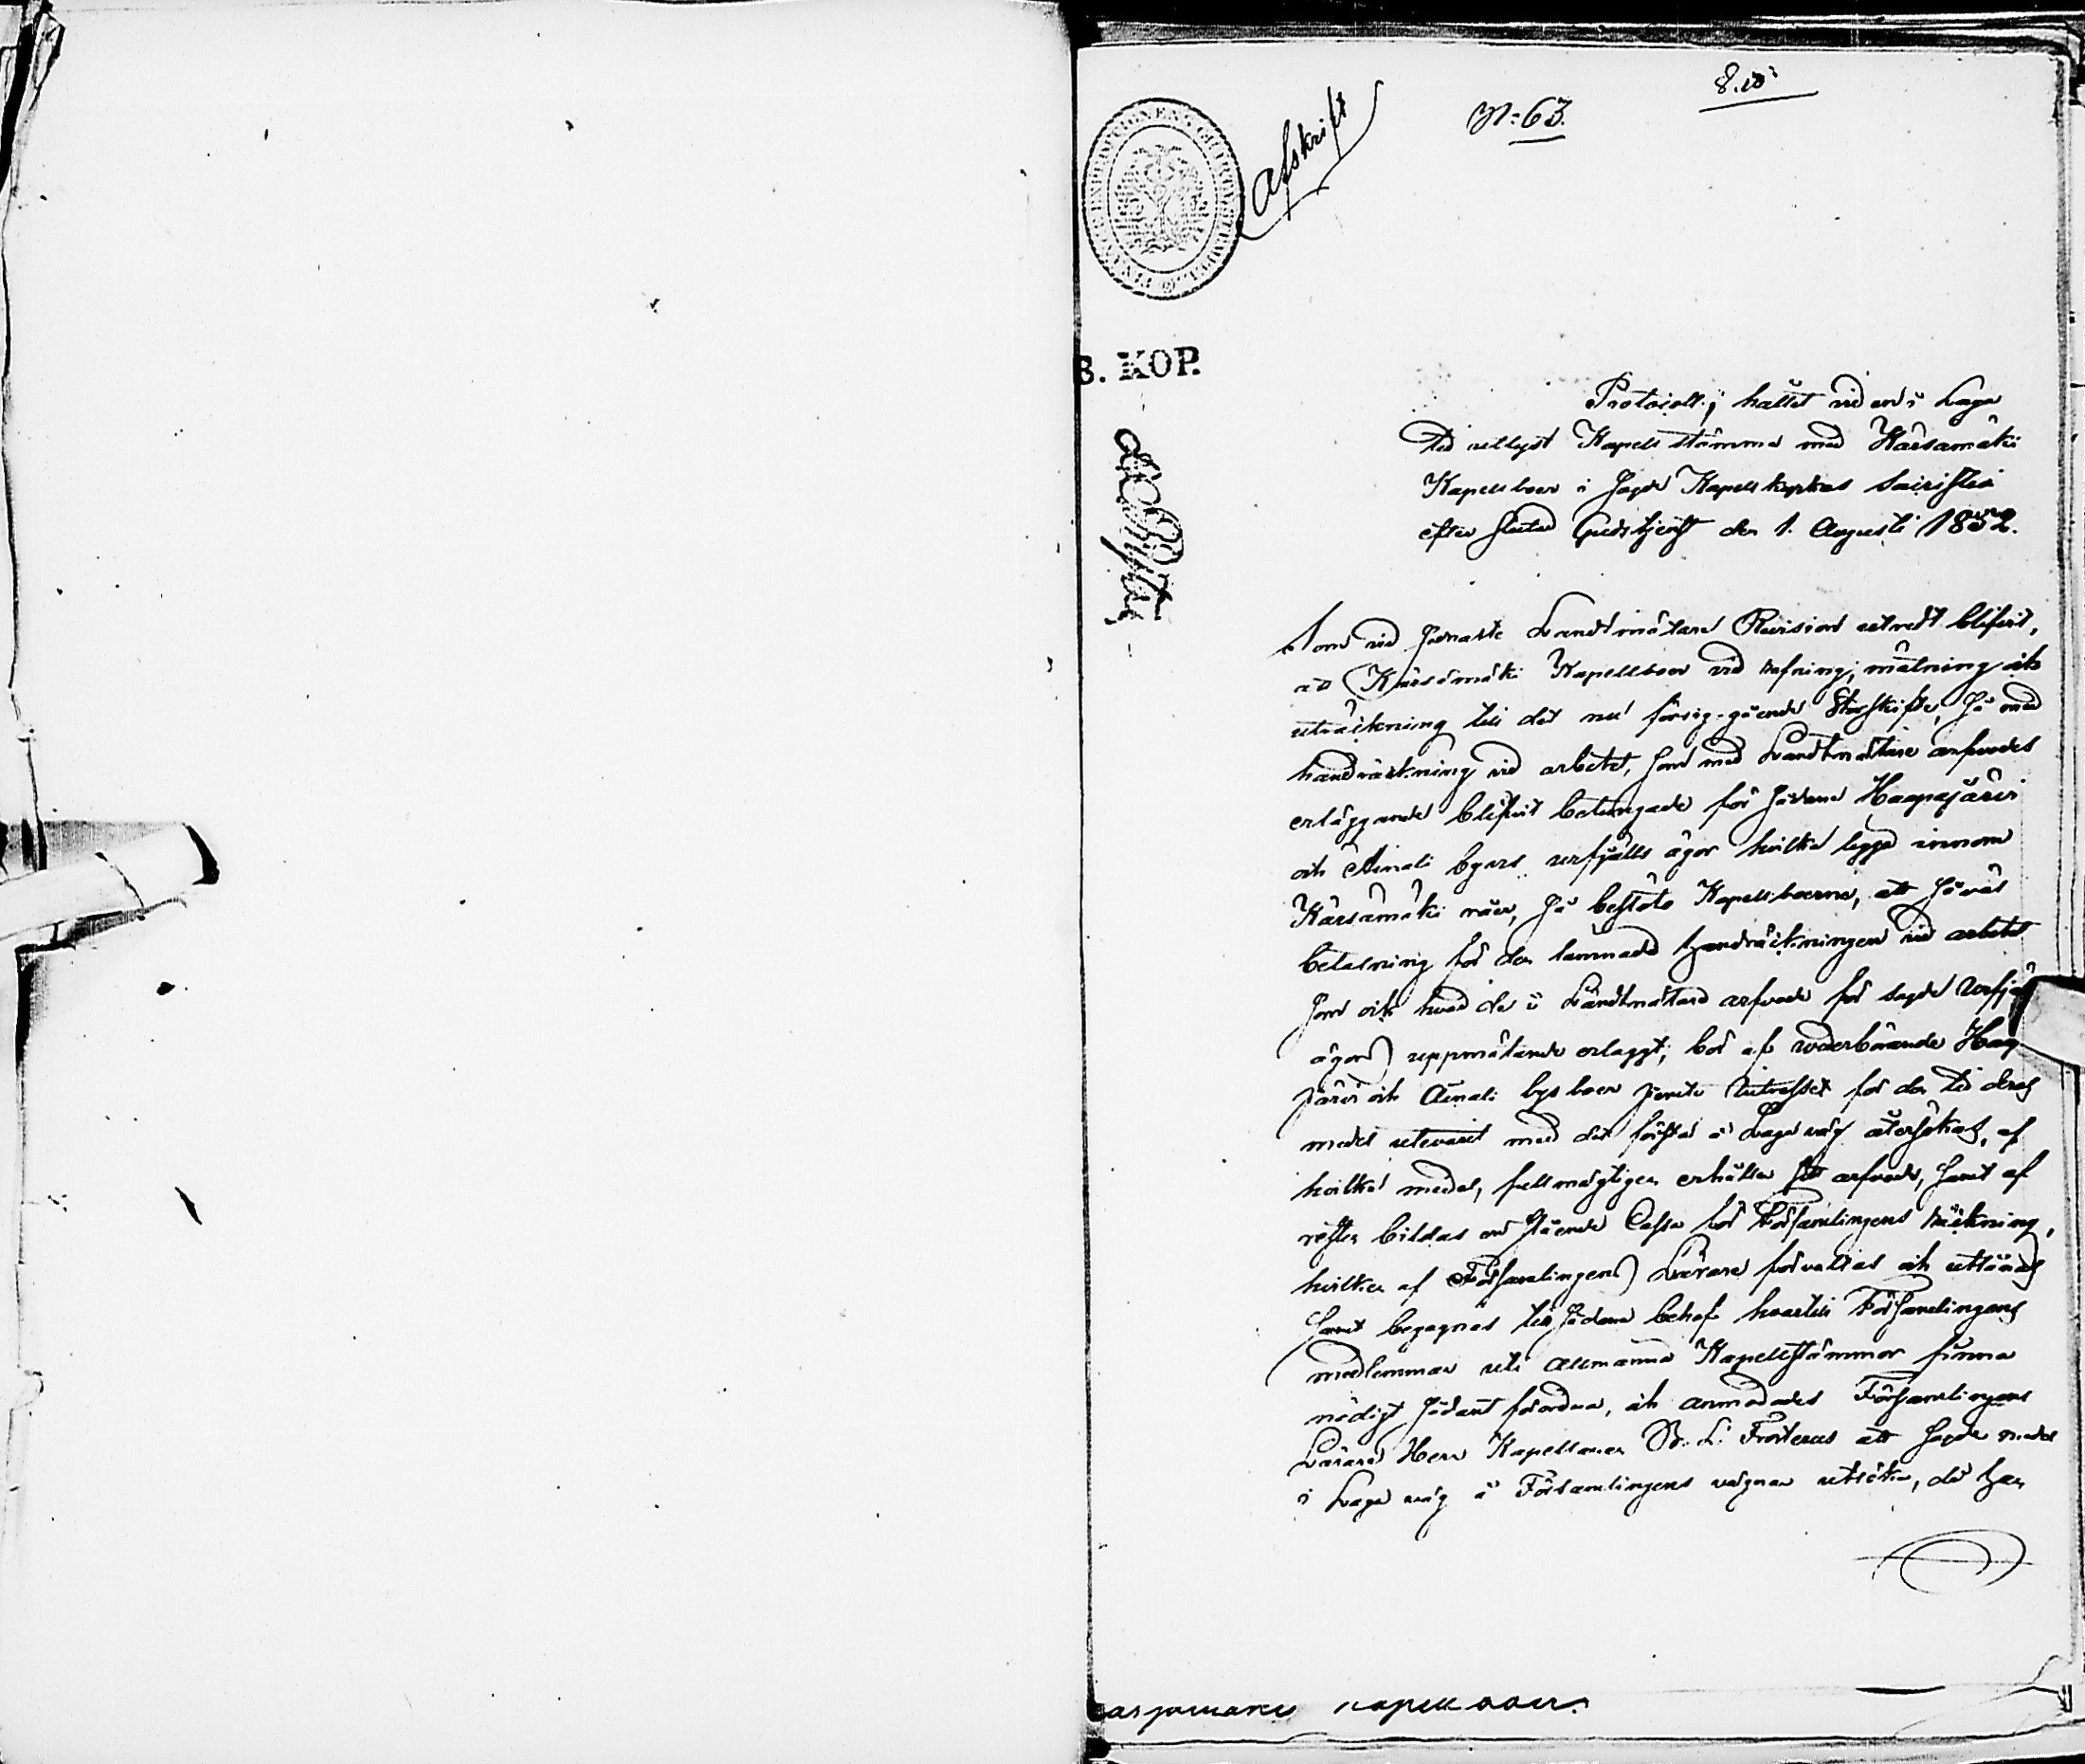 8.10:
N:63.
Afskrift
B. KOP.
Protocoll, hållet vid en i Laga
tid utlyst Kapell stämma med Kärsämäki
Kapellboer i sagde Kapellkyrkas Sacristia
efter slutad Gudstjenst den 1. Augusti 1852.
Som vid senaste Landtmätare Revision utredt blifvit,
att Kärsämäki Kapellboer vid refning, mätning och
uträckning till det nu försig-gående Storskifte, så med
handräckning vid arbetet, som med Landtmätare arfvodes
erläggande blifvit betungade för sådane Haapajärvi
och Ainali byars urfjälls ägor hvilka ligga innom
Kärsämäki råer, så beslöto Kapellboerne, att såväl
betalning för den lämnade handräckningen vid arbetet
som ock hvad de i Landtmätare arfvode för sagde Urfjä
ägors uppmätande erlaggt, bör af vederbörande Haap
järvi och Ainali bys boer jemte Intresset för den tid deras
medel utevarit med det första i Laga väg återsökas, af
hvilka medel, fullmägtigen erhåller sitt arfvode, samt af
resten bildas en stående Cassa för Församlingens räckning,
hvilken af Församlingens Lärare förvaltas och utlånas
samt begagnas till sådane behof hvartill Församlingens
medlemmar uti allmänna Kapellstämmor finna
nödigt sådant förordna, och anmodades Församlingens
Lärare Herr Kapellanen L. Frosterus att sagde medel
i Laga väg å Församlingens vägnar utsöka, då han
kapellboer